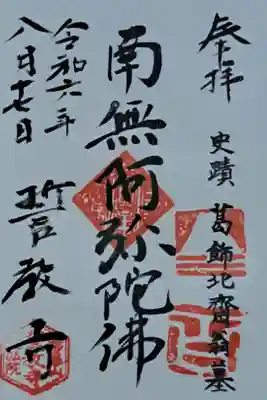 奉拝
史蹟 葛飾北齋翁墓
南無阿弥陀佛
令和六年
八月十七日
誓教寺